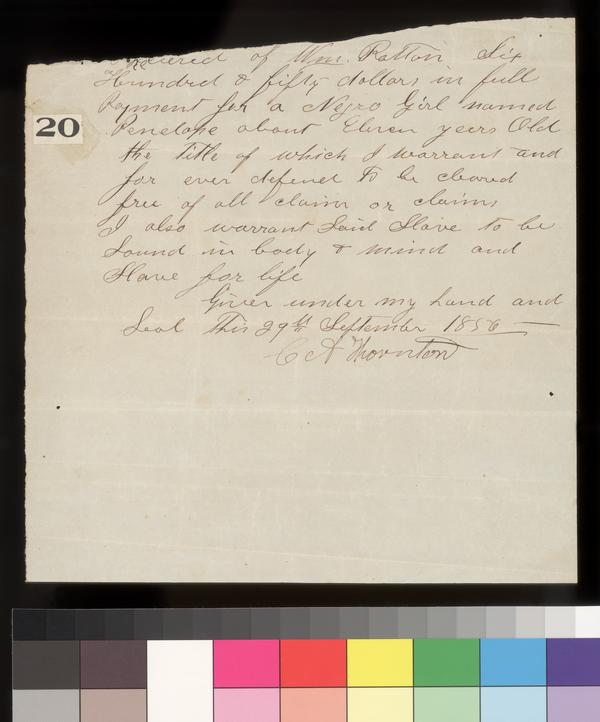 Received of Wm. Ratton Six
Hundred & fifty dollars in full
Payment for a Negro Girl named
20
Penelope about Eleven years Old
the Title of which I warrant and
for ever defend to be cleared
free of all claim or claims
I also warrant Said Slave to be
Sound in body & mind and
Slave for life
Given under my hand and
Seal This 29th September 1856
C A Thornton